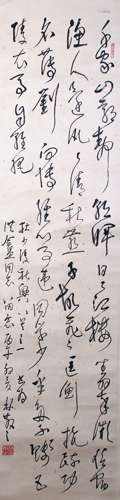 千家山郭静朝暉日日江樓坐翠微信宿
漁人還泛泛清秋燕子故飛飛匡衡抗疏功
名薄劉向傳經心事違同學少年多不賤五
陵衣馬自輕肥
杜少陵秋興八首之
同志